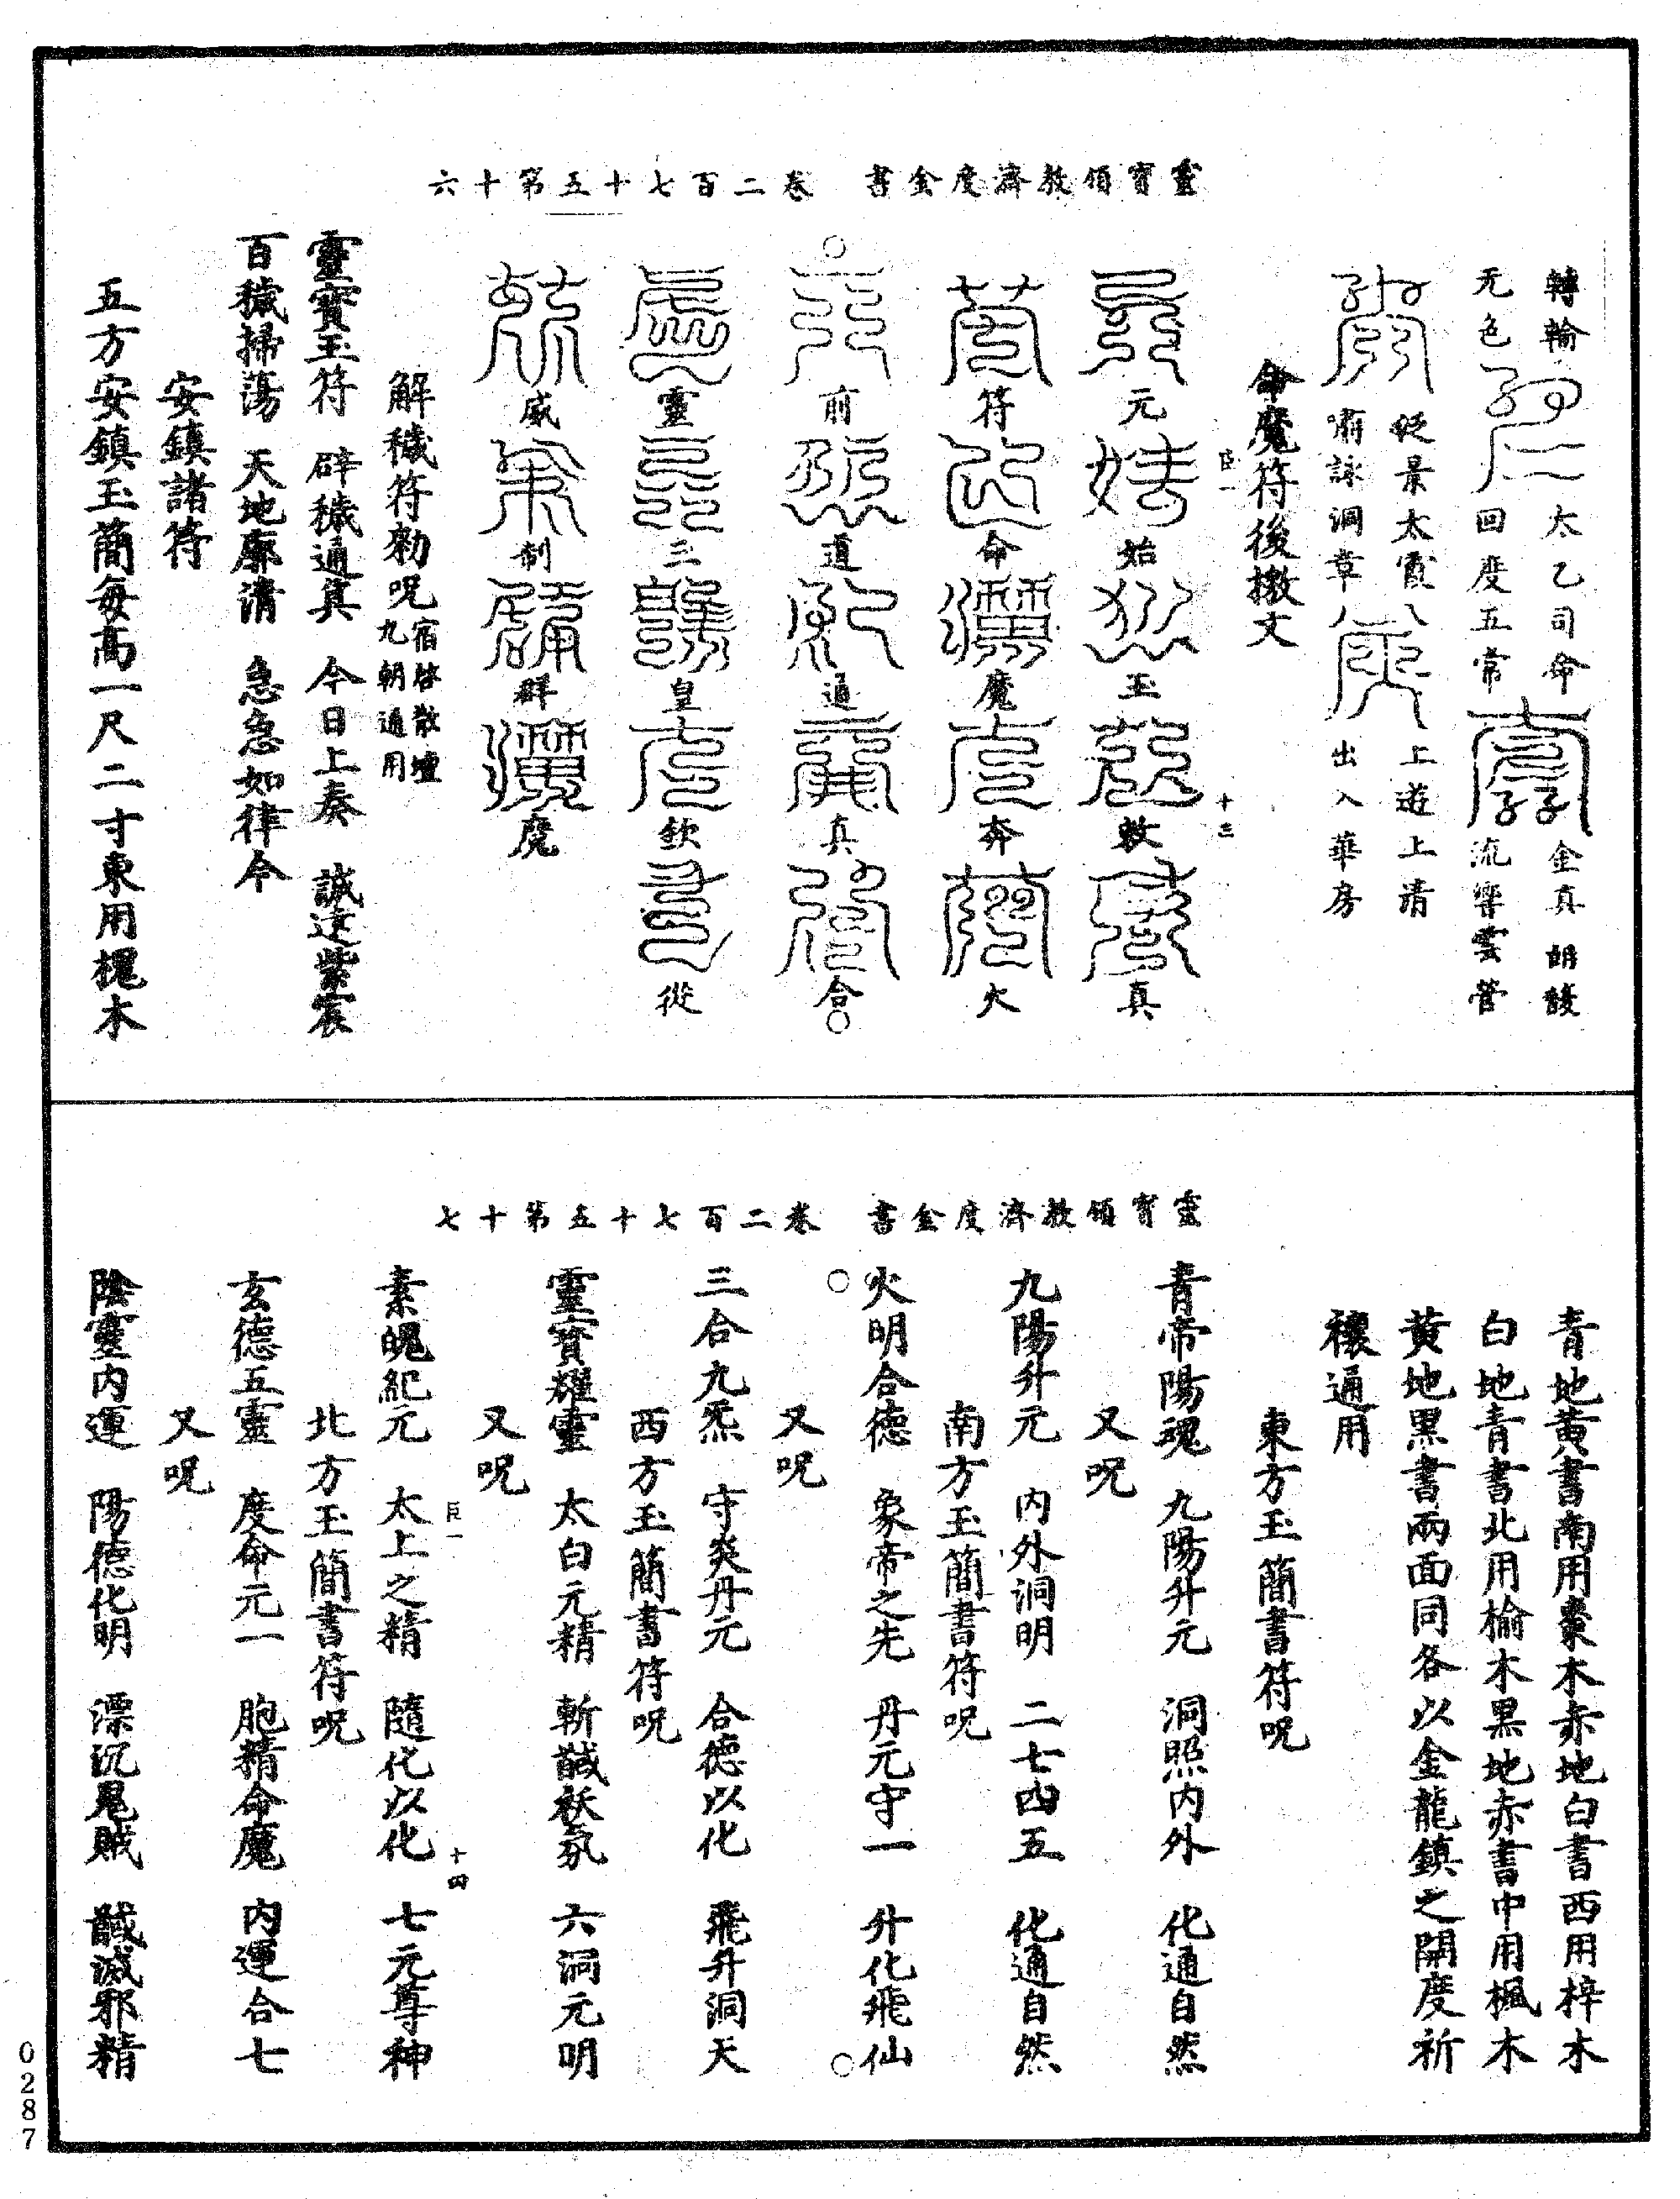 靈寶領教濟度金書　卷二百七十五第十六
轉輪　太乙司命　金真朗馥
无色　回度五常　流響雲營
泛景太霞　上遊上清
嘯詠洞章　出入華房
命魔符後檄文
元　始　玉　敕　真
符　命　魔　奔　火
前　道　通　真　合
靈　三　皇　欽　從
威　制　群　魔
解穢符勑呪宿啓散壇九朝通用
靈寶玉符　辟穢通真　今日上奏　誠達紫宸
百穢掃蕩　天地廓清　急急如律令
安鎮諸符
五方安鎮玉簡每高一尺二寸東用槐木
臣一
十三
靈寶領教濟度金書　卷二百七十五第十七
青地黃書南用棗木赤地白書西用梓木
白地青書北用榆木黑地赤書中用楓木
黃地黑書兩面同各以金龍鎮之開度祈
禳通用
東方玉簡書符呪
青帝陽魂　九陽升元　洞照內外　化通自然
又呪
九陽升元　內外洞明　二七四五　化通自然
南方玉簡書符呪
火明合德　象帝之先　丹元守一　升化飛仙
又呪
三合九炁　守炎丹元　合德以化　飛升洞天
西方玉簡書符呪
靈寶耀靈　太白元精　斬馘祅氛　六洞元明
又呪
臣一
十四
素魄紀元　太上之精　隨化以化　七元尊神
北方玉簡書符呪
玄德五靈　度命元一　胞精命魔　內運合七
又呪
陰靈內運　陽德化明　漂沉鬼賊　馘滅邪精
0287